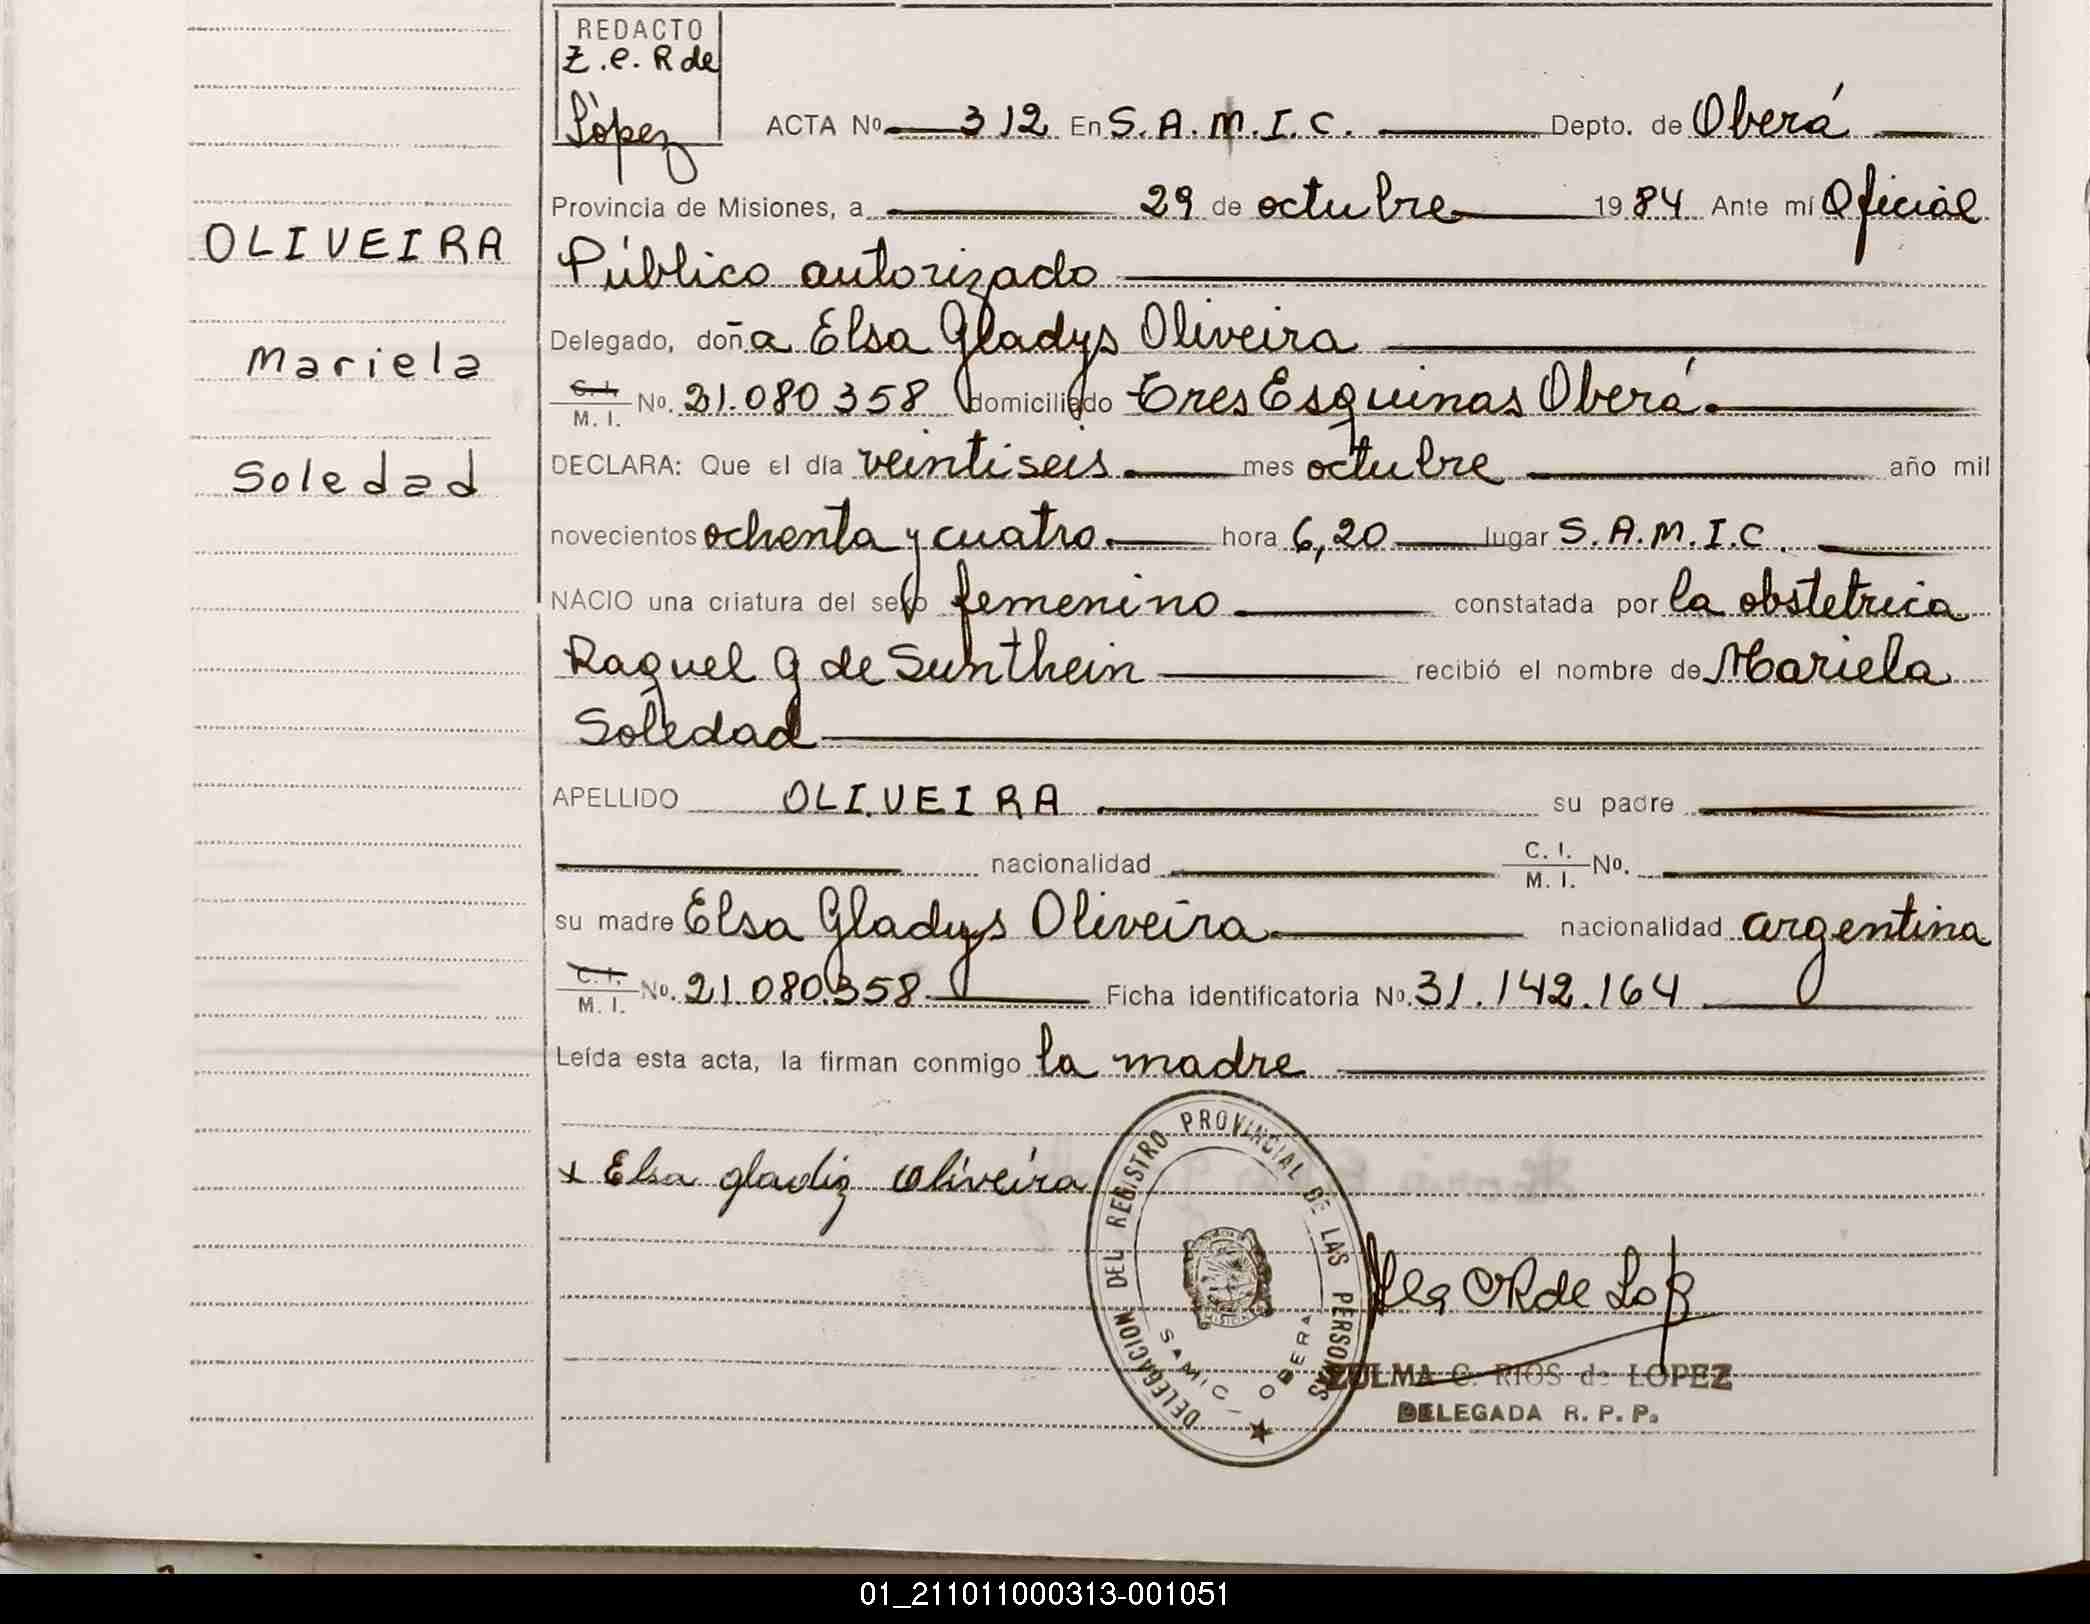 REDACTO
Z.C. R de
López
ACTA Nº 312 En S.A.M.I.C. Depto. de Oberá
Provincia de Misiones, a 29 de octubre 1984 Ante mí Oficial
OLIVEIRA
Público autorizado
Delegado, doña Elsa Gladys Oliveira
Mariela
C. I. M. I. Nº. 21.080.358 domiciliado Tres Esquinas Oberá.
DECLARA: Que el día veintiseis mes octubre año mil
Soledad
novecientos ochenta y cuatro hora 6,20 lugar S.A.M.I.C.
NACIO una criatura del sexo femenino constatada por la obstetrica
Raquel G de Sunthein recibió el nombre de Mariela
Soledad
APELLIDO OLIVEIRA su padre
nacionalidad C. I. M. I. Nº.
su madre Elsa Gladys Oliveira nacionalidad argentina
C. I. M. I. Nº. 21.080.358 Ficha identificatoria Nº. 31.142.164
Leída esta acta, la firman conmigo la madre
x Elsa gladiz oliveira
DELEGACION DEL REGISTRO PROVINCIAL DE LAS PERSONAS
SAMIC - OBERA
ZULMA C. RIOS de LOPEZ
DELEGADA R. P. P.
01_211011000313-001051